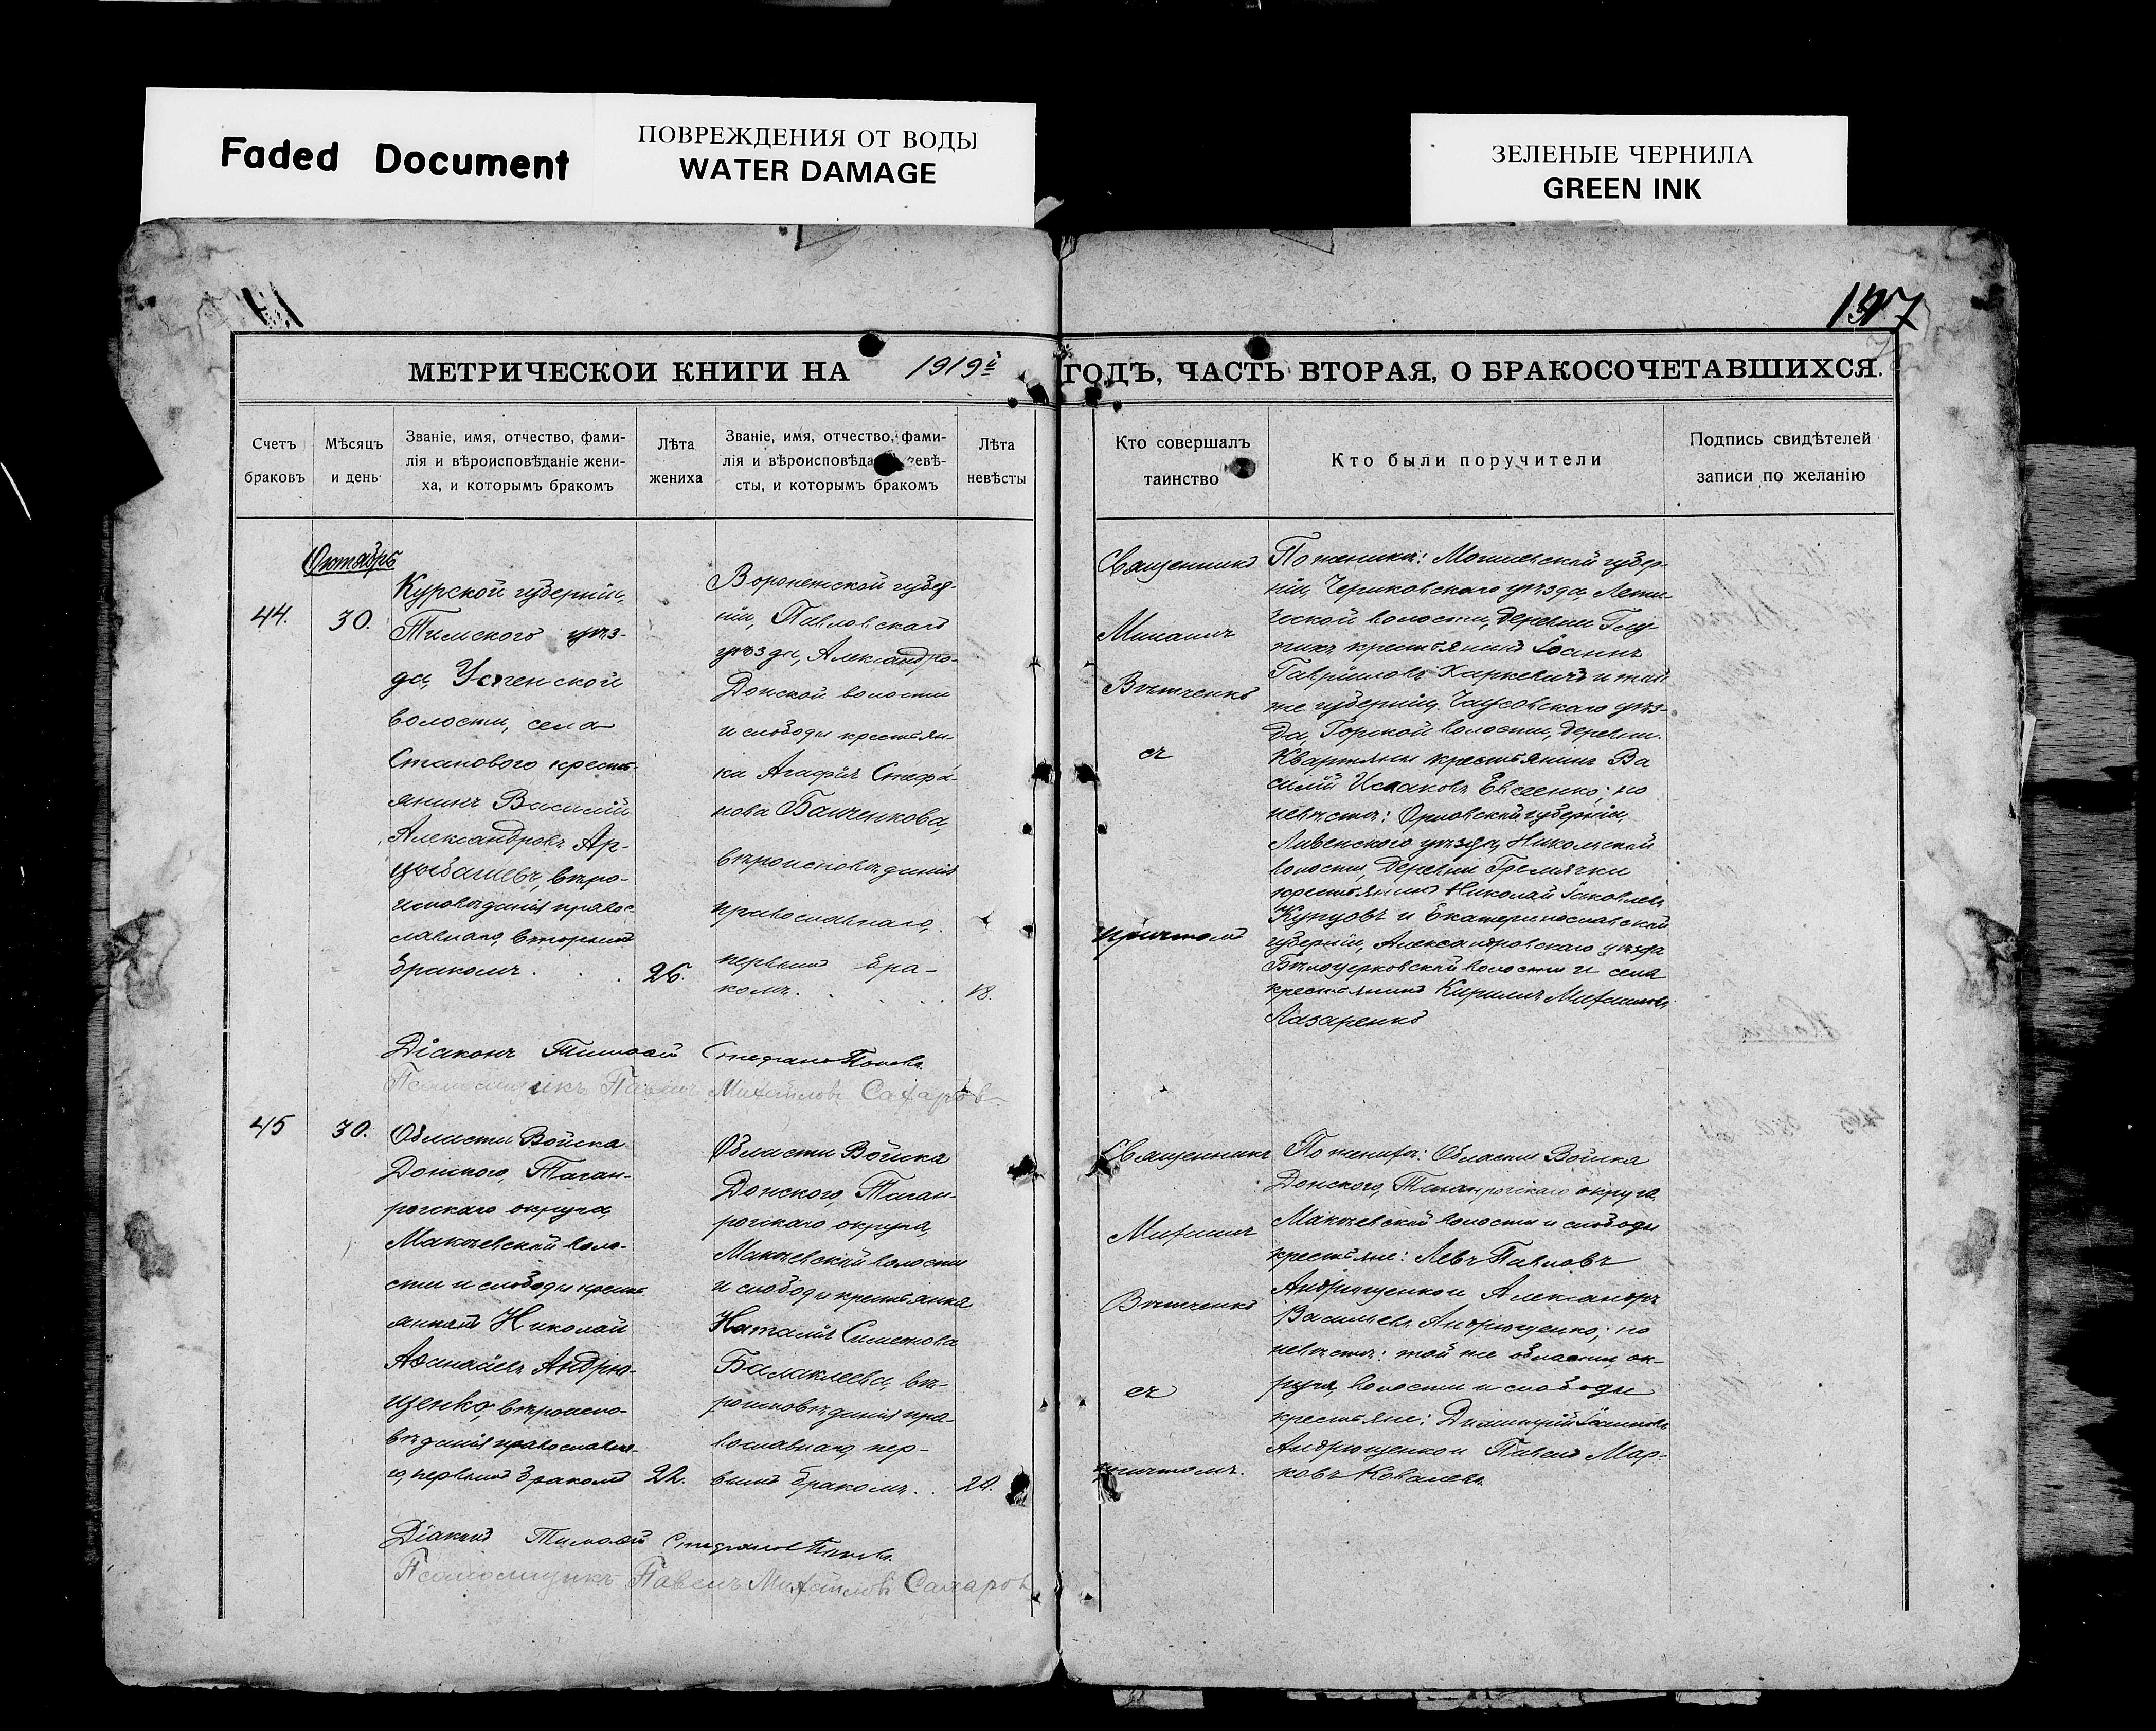 Faded Document
ПОВРЕЖДЕНИЯ ОТ ВОДЫ
WATER DAMAGE
ЗЕЛЕНЫЕ ЧЕРНИЛА
GREEN INK
МЕТРИЧЕСКОЙ КНИГИ НА 1919й ГОДЪ, ЧАСТЬ ВТОРАЯ, О БРАКОСОЧЕТАВШИХСЯ.
Счетъ
браковъ
Мѣсяцъ
и день
Званіе, имя, отчество, фами-
лія и вѣроисповѣданіе жени-
ха, и которымъ бракомъ
Лѣта
жениха
Званіе, имя, отчество, фами-
лія и вѣроисповѣда невѣ-
сты, и которымъ бракомъ
Лѣта
невѣсты
Кто совершалъ
таинство
Кто были поручители
Подпись свидѣтелей
записи по желанію
Октябрь
44.
30.
Курской губерніи,
Тимского уѣз-
да, Успенской
волости, села
Станового кресть-
янинъ Василій
Александровъ Ар-
цыбашевъ, вѣро-
исповѣданія правос-
лавнаго, вторымъ
бракомъ.
26.
Воронежской губер-
ніи, Павловскаго
уѣзда, Александро-
Донской волости
и слободы крестьян-
ка Агафія Стефа-
нова Банченкова,
вѣроисповѣданія
православнаго,
первымъ бра-
комъ.
18.
Священникъ
Михаилъ
Вѣтченко
съ
причтомъ
По женихѣ: Могилевской губер-
ніи, Чериковскаго уѣзда,
волости, деревни
крестьянинъ Іоаннъ
Гавріиловъ Харкевичъ и той
же губерніи, Чаусовскаго уѣз-
да, Горской волости, деревни
крестьянинъ Ва
силій Исааковъ Евсеенко; по
невѣстѣ: Орловской губерніи
Ливенского уѣзда, Никольской
волости, деревни Гремячки
крестьянинъ Николай Іаковлевъ
Купцовъ и Екатеринославской
губерніи, Александровскаго уѣзда
Бѣлоцерковской волости и села
крестьянинъ Кириллъ Михаиловъ
Лазаренко
Діаконъ Тимоѳей Стефановъ Поповъ.
Псаломщикъ Павелъ Михайловъ Сахаровъ
45
30.
Области Войска
Донского, Таган-
рогскаго округа,
Макѣевской воло-
сти и слободы кресть
янинъ Николай
Аѳанасіевъ Андрю-
щенко, вѣроиспо-
вѣданія православна-
го, первымъ бракомъ
22.
Области Войска
Донского, Таган-
рогскаго округа,
Макѣевской волости
и слободы крестьянка
Наталія
Балаклеева, вѣ-
роисповѣданія пра-
вославнаго, пер-
вымъ бракомъ.
20.
Священникъ
Михаилъ
Вѣтченко
съ
причтомъ.
По женихѣ: Области Войска
Донского, Таганрогскаго округа,
Макѣевской волости и слободы
крестьяне: Левъ Павловъ
Андрющенко и Александръ
Васильевъ Андрющенко; по
невѣстѣ: той же области, ок-
руга, волости и слободы
крестьяне: Димитрій Іоанновъ
Андрющенко и Павелъ Мар-
ковъ Ковалевъ.
Діаконъ Тимоѳей Стефановъ Поповъ.
Псаломщикъ Павелъ Михайловъ Сахаровъ